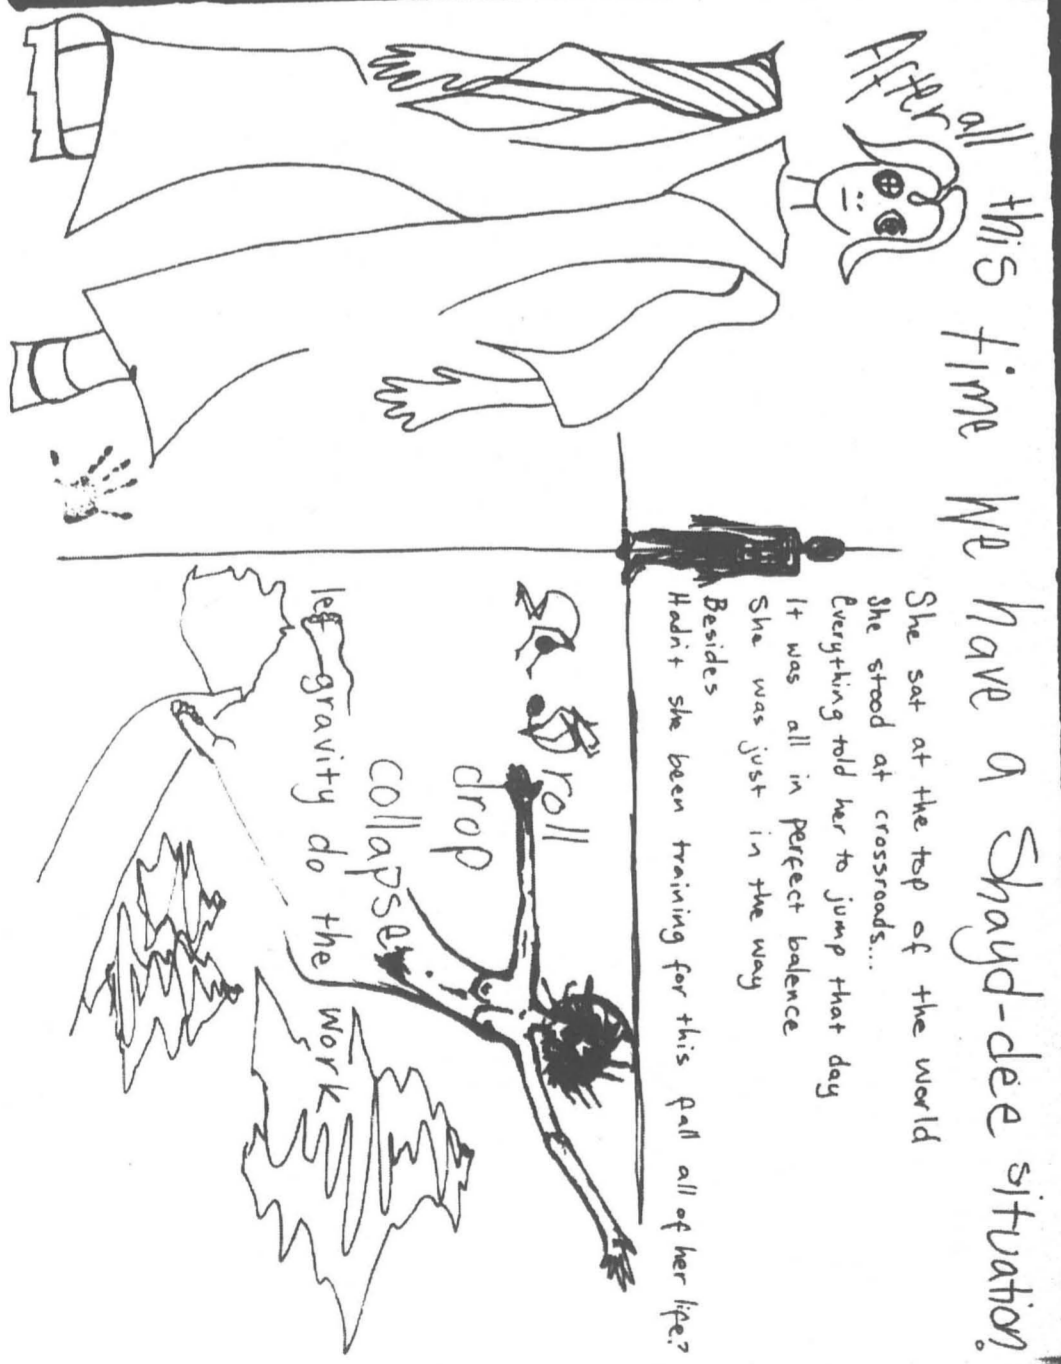 After all this time we have a Shayd-dee situation.
She sat at the top of the world
She stood at crossroads...
Everything told her to jump that day
It was all in perfect balence
She was just in the way
Besides
Hadn't she been training for this fall all of her life?
roll
drop
collapse
let gravity do the work